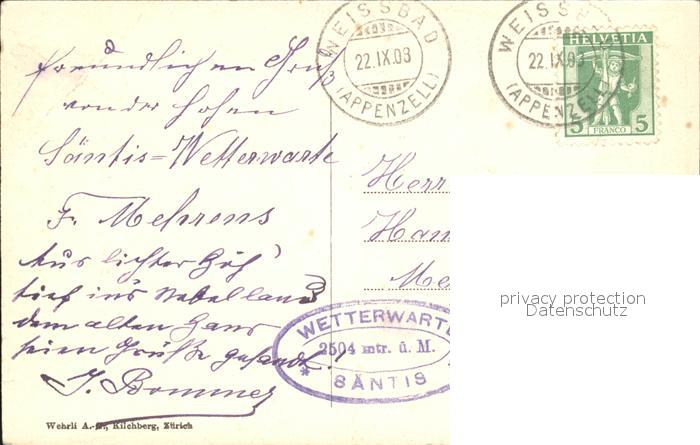 WEISSBAD
22.IX.08
(APPENZELL)
WEISSBAD
22.IX.08
(APPENZELL)
HELVETIA
5 FRANCO 5
freundlichen Gruß
von der hohen
Säntis=Wetterwarte
F. Mehrens
Aus lichter Höh'
tief in's Nebelland
dem alten Hans
seien Grüße gesandt!
J. Bommer
Herr
privacy protection
Datenschutz
WETTERWARTE
2504 mtr. ü. M.
* SÄNTIS
Wehrli A.-G., Kilchberg, Zürich